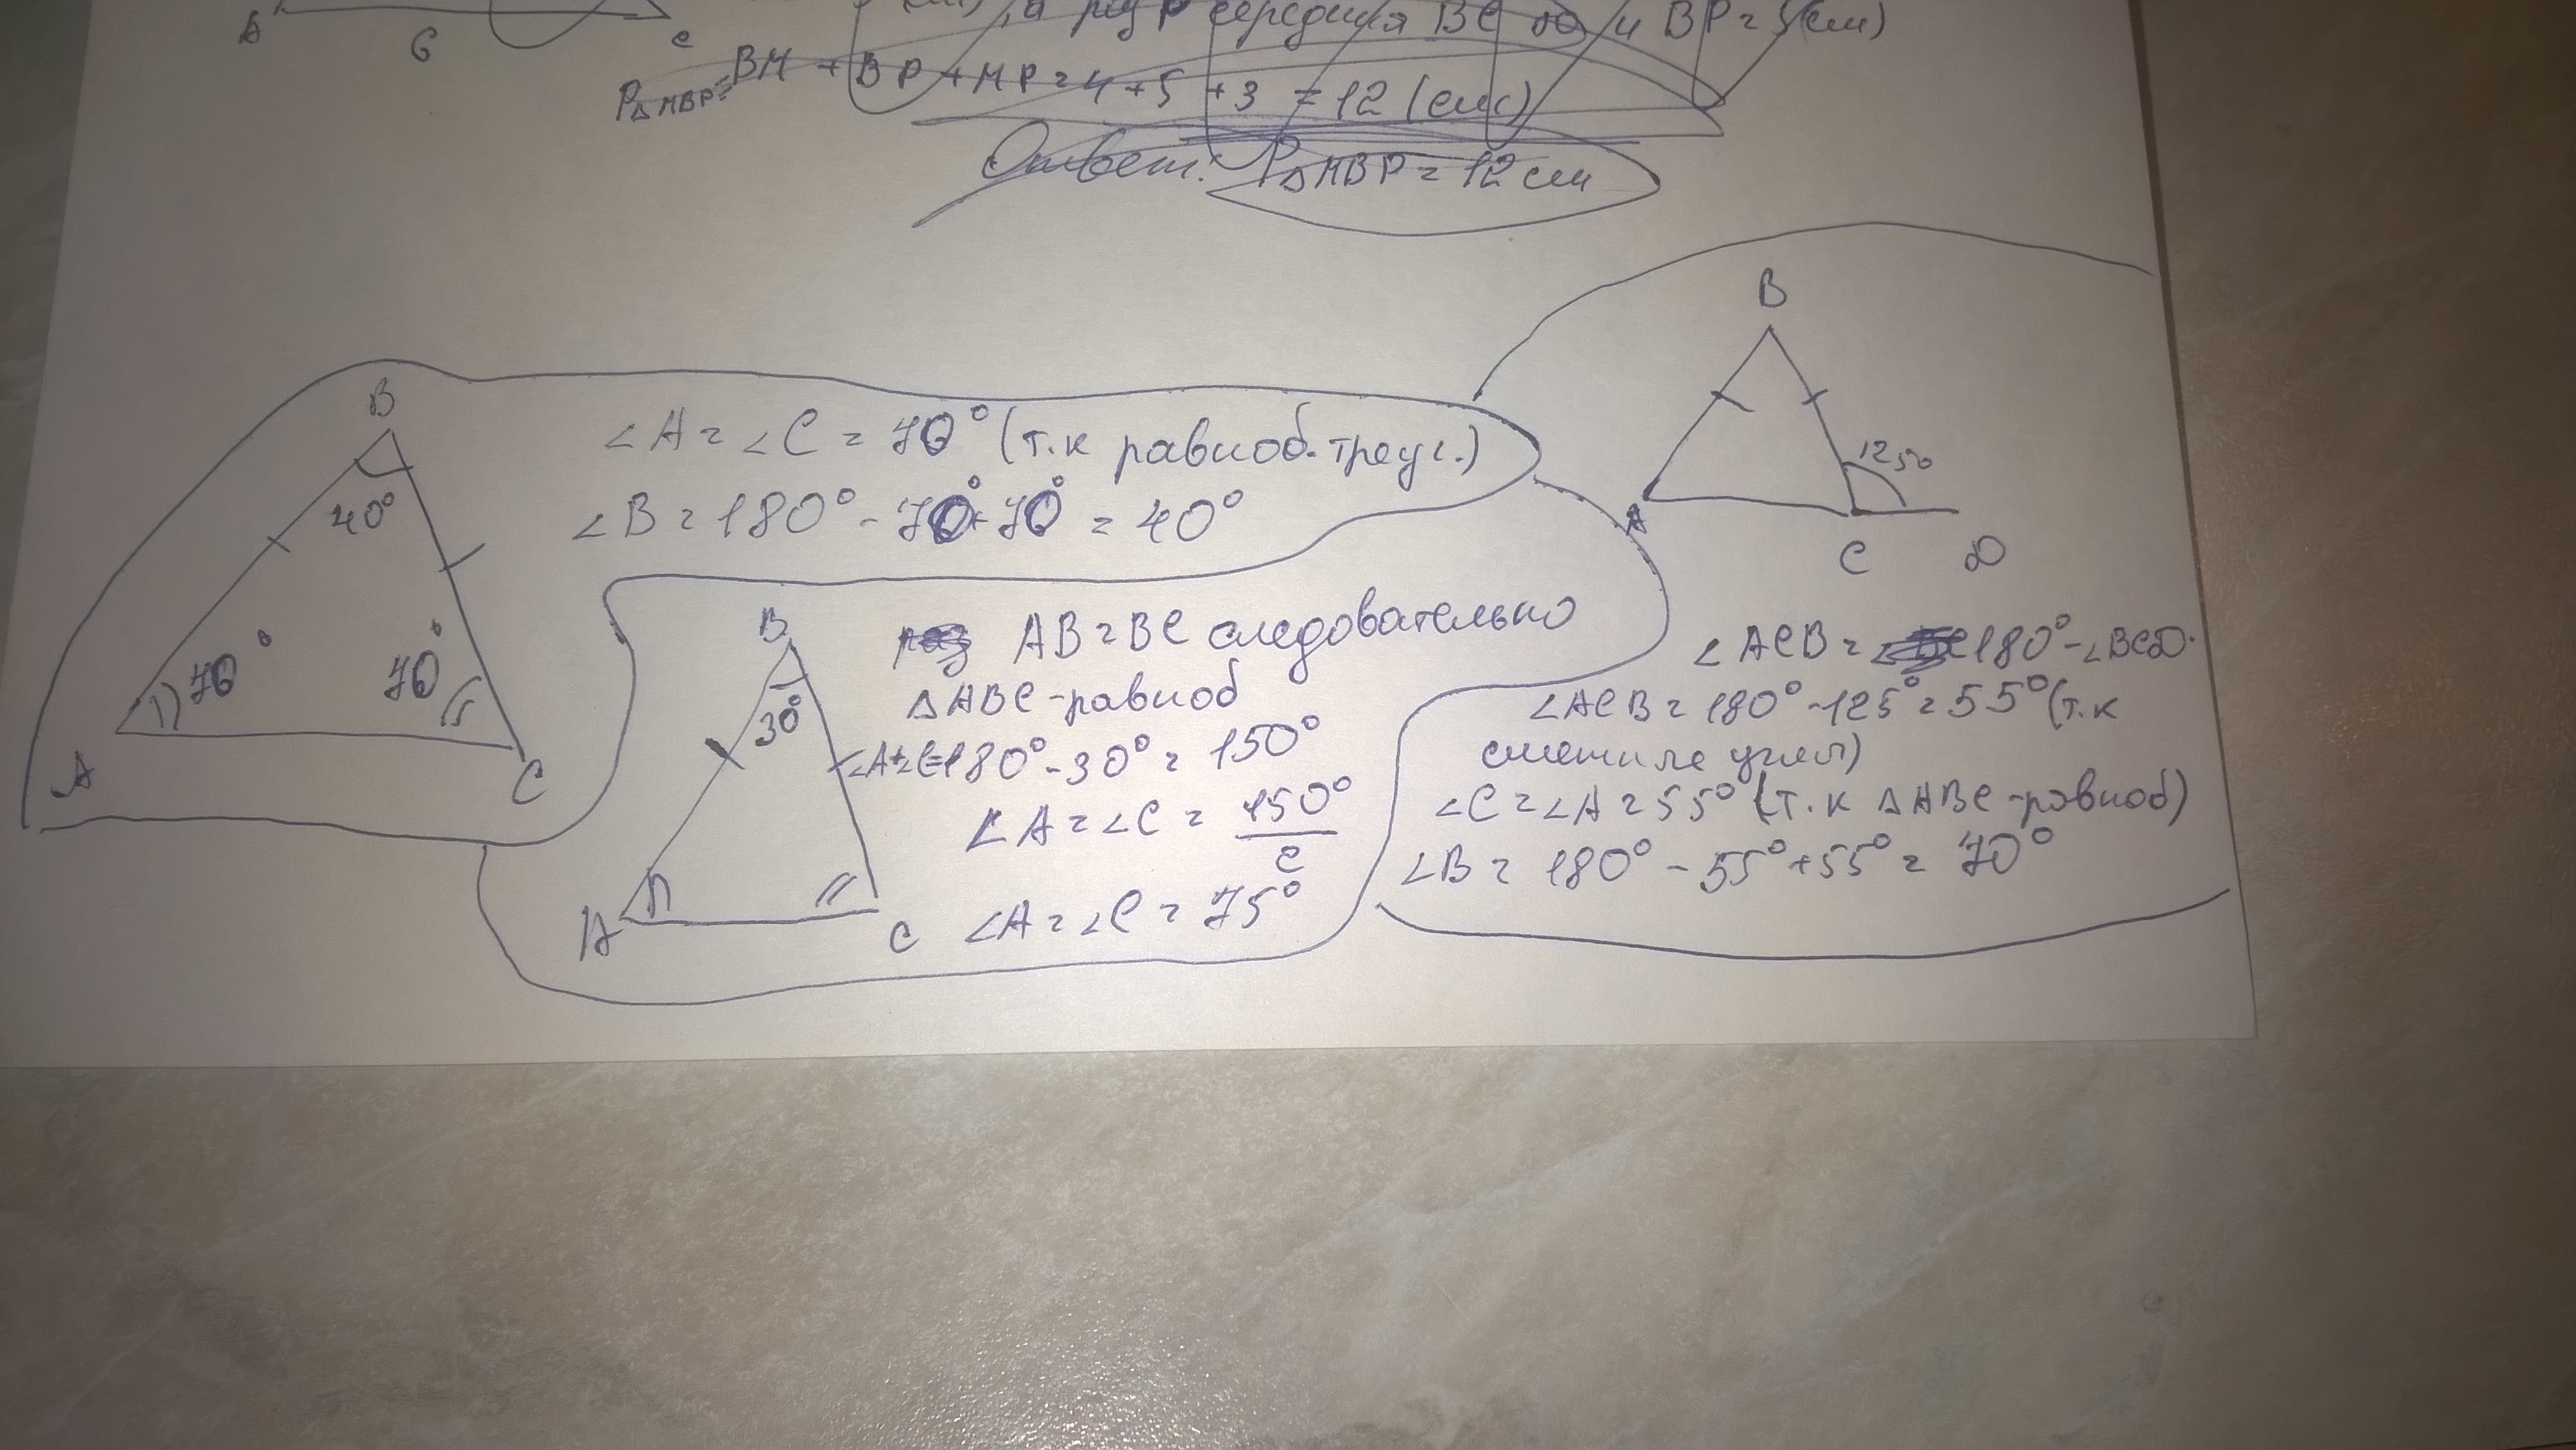 A 6 C
(см), а раз P середина BC то и BP = 5(см)
P△MBP = BM + BP + MP = 4 + 5 + 3 = 12 (см)
Ответ: P△MBP = 12 см
B
40°
70°
70°
A
C
∠A = ∠C = 70° (т.к равноб. треуг.)
∠B = 180° - 70° + 70° = 40°
B
30°
A
C
AB = BC следовательно
△ABC - равноб
∠A+∠C=180° - 30° = 150°
∠A = ∠C = 150°
2
∠A = ∠C = 75°
B
125°
A
C
D
∠ACB = 180° - ∠BCD.
∠ACB = 180° - 125° = 55° (т.к
смежные углы)
∠C = ∠A = 55° (т.к △ABC - равноб)
∠B = 180° - 55° + 55° = 70°